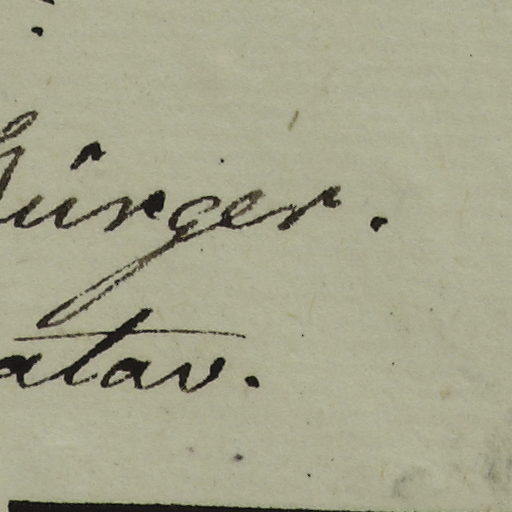 ürger.
atav.